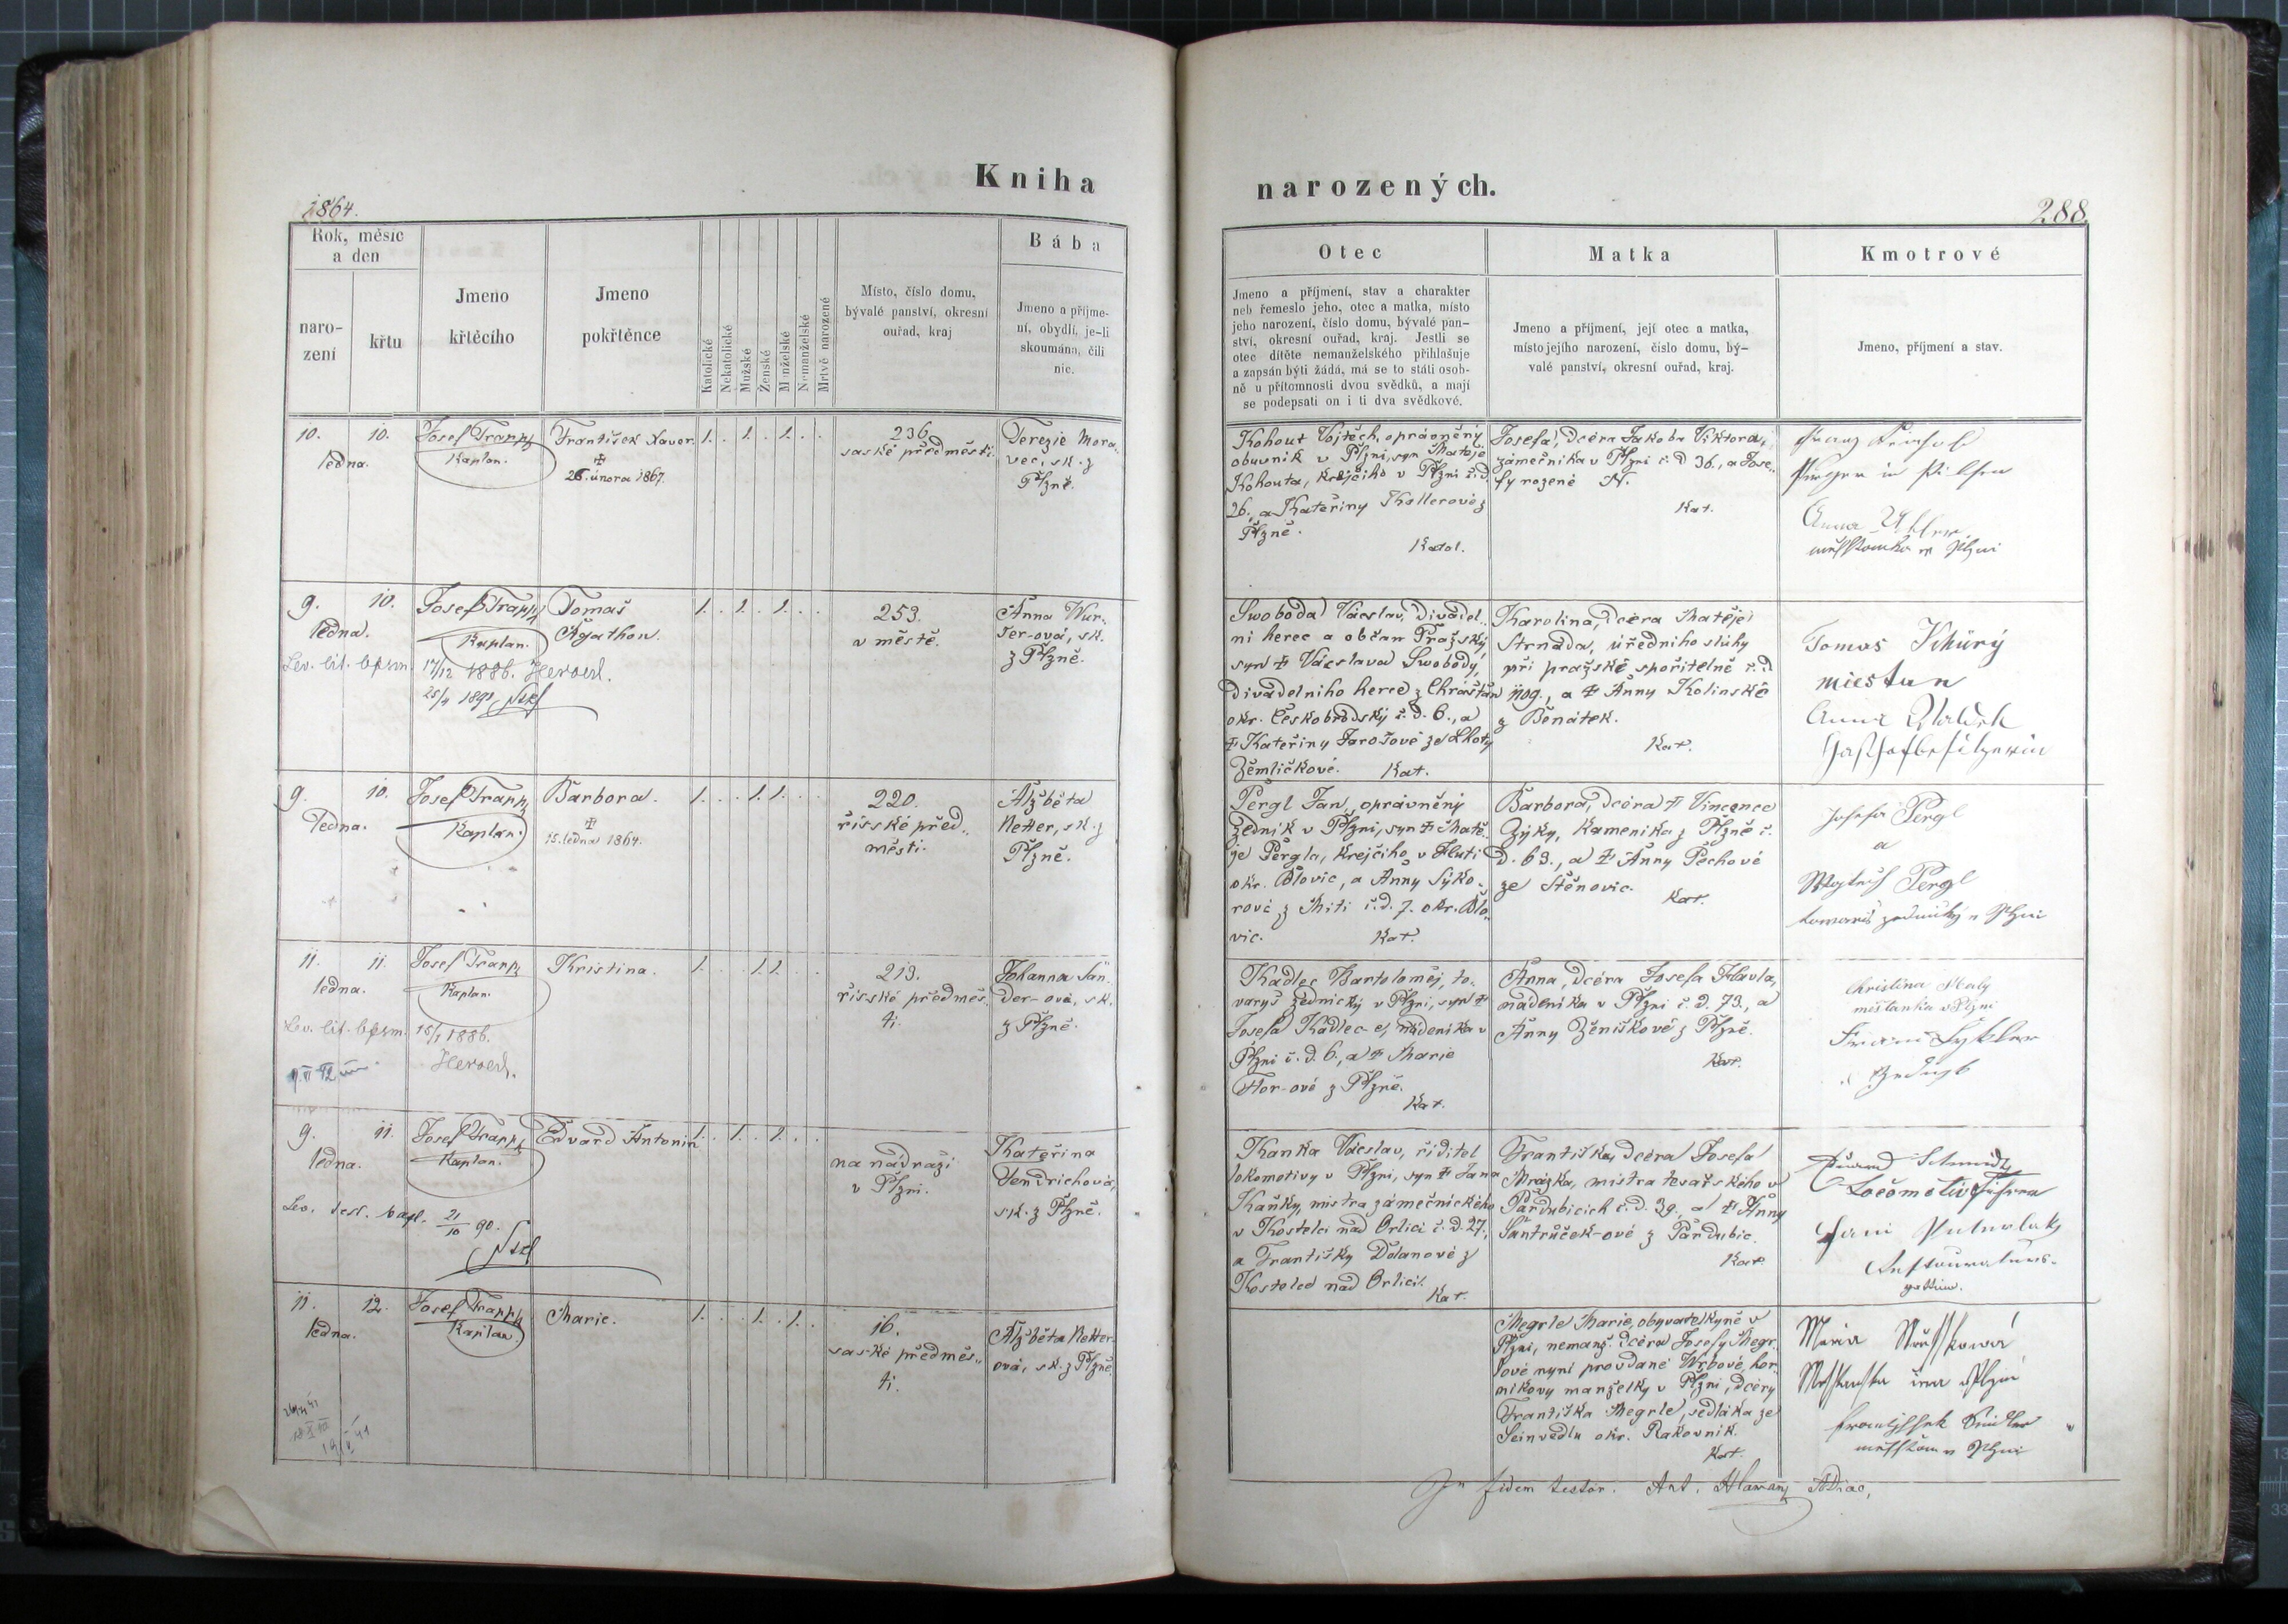 Kniha
narozených.
1864.
288.
Rok, měsíc
a den
naro-
zení
křtu
Jmeno
křtěcího
Jmeno
pokřtěnce
Katolické
Nekatolické
Mužské
Ženské
Manželské
Nemanželské
Mrtvě narozené
Místo, číslo domu,
bývalé panství, okresní
ouřad, kraj
Bába
Jmeno a příjme-
ní, obydlí, je-li
skoumána, čili
nic.
Otec
Jmeno a příjmení, stav a charakter
neb řemeslo jeho, otec a matka, místo
jeho narození, číslo domu, bývalé pan-
ství, okresní ouřad, kraj. Jestli se
otec dítěte nemanželského přihlašuje
a zapsán býti žádá, má se to státi osob-
ně u přítomnosti dvou svědků, a mají
se podepsati on i ti dva svědkové.
Matka
Jmeno a příjmení, její otec a matka,
místo jejího narození, číslo domu, bý-
valé panství, okresní ouřad, kraj.
Kmotrové
Jmeno, příjmení a stav.
10. 10.
ledna.
Josef Trapp
Kaplan.
František Xaver.
26. února 1867.
1. . 1. . 1. . .
236.
saské předměstí.
Terezie Mora-
vec, sk. z
Plzně.
Kohout Vojtěch, oprávněný
obuvník v Plzni, syn Matěje
Kohouta, krejčího v Plzni č.d.
26., a Kateřiny Kollerové z
Plzně.
Katol.
Josefa, dcera Jakoba Viktora,
zámečníka v Plzni č. d. 36., a Jose-
fy rozené N.
Kat.
Franz
in Pilsen
Anna
v Plzni
9. 10.
ledna.
Lev. lit. bapsm. 17/12 1886. Heroed.
25/4 1891
Josef Trapp
Kaplan.
Tomaš
Agathon.
1. . 1. . 1. . .
253.
v městě.
Anna Wur-
ter-ová, sk.
z Plzně.
Swoboda Václav, divadel-
ní herec a občan Pražský,
syn Václava Swobody,
divadelního herce z Chrášťan
okr. Českobrodský č. d. 6., a
Kateřiny Jarošové ze Lhoty
Žemličkové. Kat.
Karolina, dcera Matěje
Strnada, úředního sluhy
při pražské spořitelně č. d.
1109., a Anny Kolínské
z Benátek.
Kat.
Tomas Khürý
miestan
Anna
Gasthofbesitzerin
9. 10.
ledna.
Josef Trapp
Kaplan.
Barbora.
15. ledna 1864.
1. . . 1. 1. . .
220.
říšské před-
městí.
Alžběta
Netter, sk. z
Plzně.
Pergl Jan, oprávněný
zedník v Plzni, syn Matě-
je Pergla, krejčího v Hluti
okr. Blovic, a Anny Sýko-
rové z Mití č. d. 7. okr. Blo-
vic. Kat.
Barbora, dcera Vincence
Zýky, kameníka z Plzně č.
d. 63., a Anny Pechové
ze Stěnovic. Kat.
Josefa Pergl
a
Wojtěch Pergl
zednický v Plzni
11. 11.
ledna.
Lev. lit. bapsm. 15/1 1886.
Heroed.
Josef Trapp
Kaplan.
Kristina.
1. . . 1. 1. . .
213.
říšské předměs-
tí.
Johanna San-
der-ová, sk.
z Plzně.
Kadlec Bartoloměj, to-
varyš zednický v Plzni, syn
Josefa Kadlec-e, nádeníka v
Plzni č. d. 6., a Marie
Hor-ové z Plzně.
Kat.
Anna, dcera Josefa Havla,
nádeníka v Plzni č. d. 73., a
Anny Ženíškové z Plzně.
Kat.
Kristina
městanka v Plzni
9. 11.
ledna.
Lev. test. bapt. 21/10 90.
Josef Trapp
Kaplan.
Edvard Antonín
1. . 1. . 1. . .
na nádraží
v Plzni.
Kateřina
Jendrichová,
sk. z Plzně.
Kaňka Václav, řiditel
lokomotivy v Plzni, syn Jana
Kaňky, mistra zámečnického
v Kostelci nad Orlicí č. d. 27.,
a Františky Dolanové z
Kostelce nad Orlicí. Kat.
Františka, dcera Josefa
Mrázka, mistra tesařského v
Pardubicích č. d. 39., a Anny
Šantrůček-ové z Pardubic.
Kat.
Eduard Schmidt
Locomotivführer
11. 12.
ledna.
Josef Trapp
Kaplan.
Marie.
1. . . 1. . 1. .
16.
saské předměs-
tí.
Alžběta Netter-
ová, sk. z Plzně.
Megrle Marie, obyvatelkyně v
Plzni, nemanž. dcera Josefy Megr-
lové nyní provdané Wrbové, hor-
níkovy manželky v Plzni, dcery
Františka Megrle, sedláka ze
okr. Rakovník.
Kat.
Maria
v Plzni
In fidem testor. Ant. Hlawan